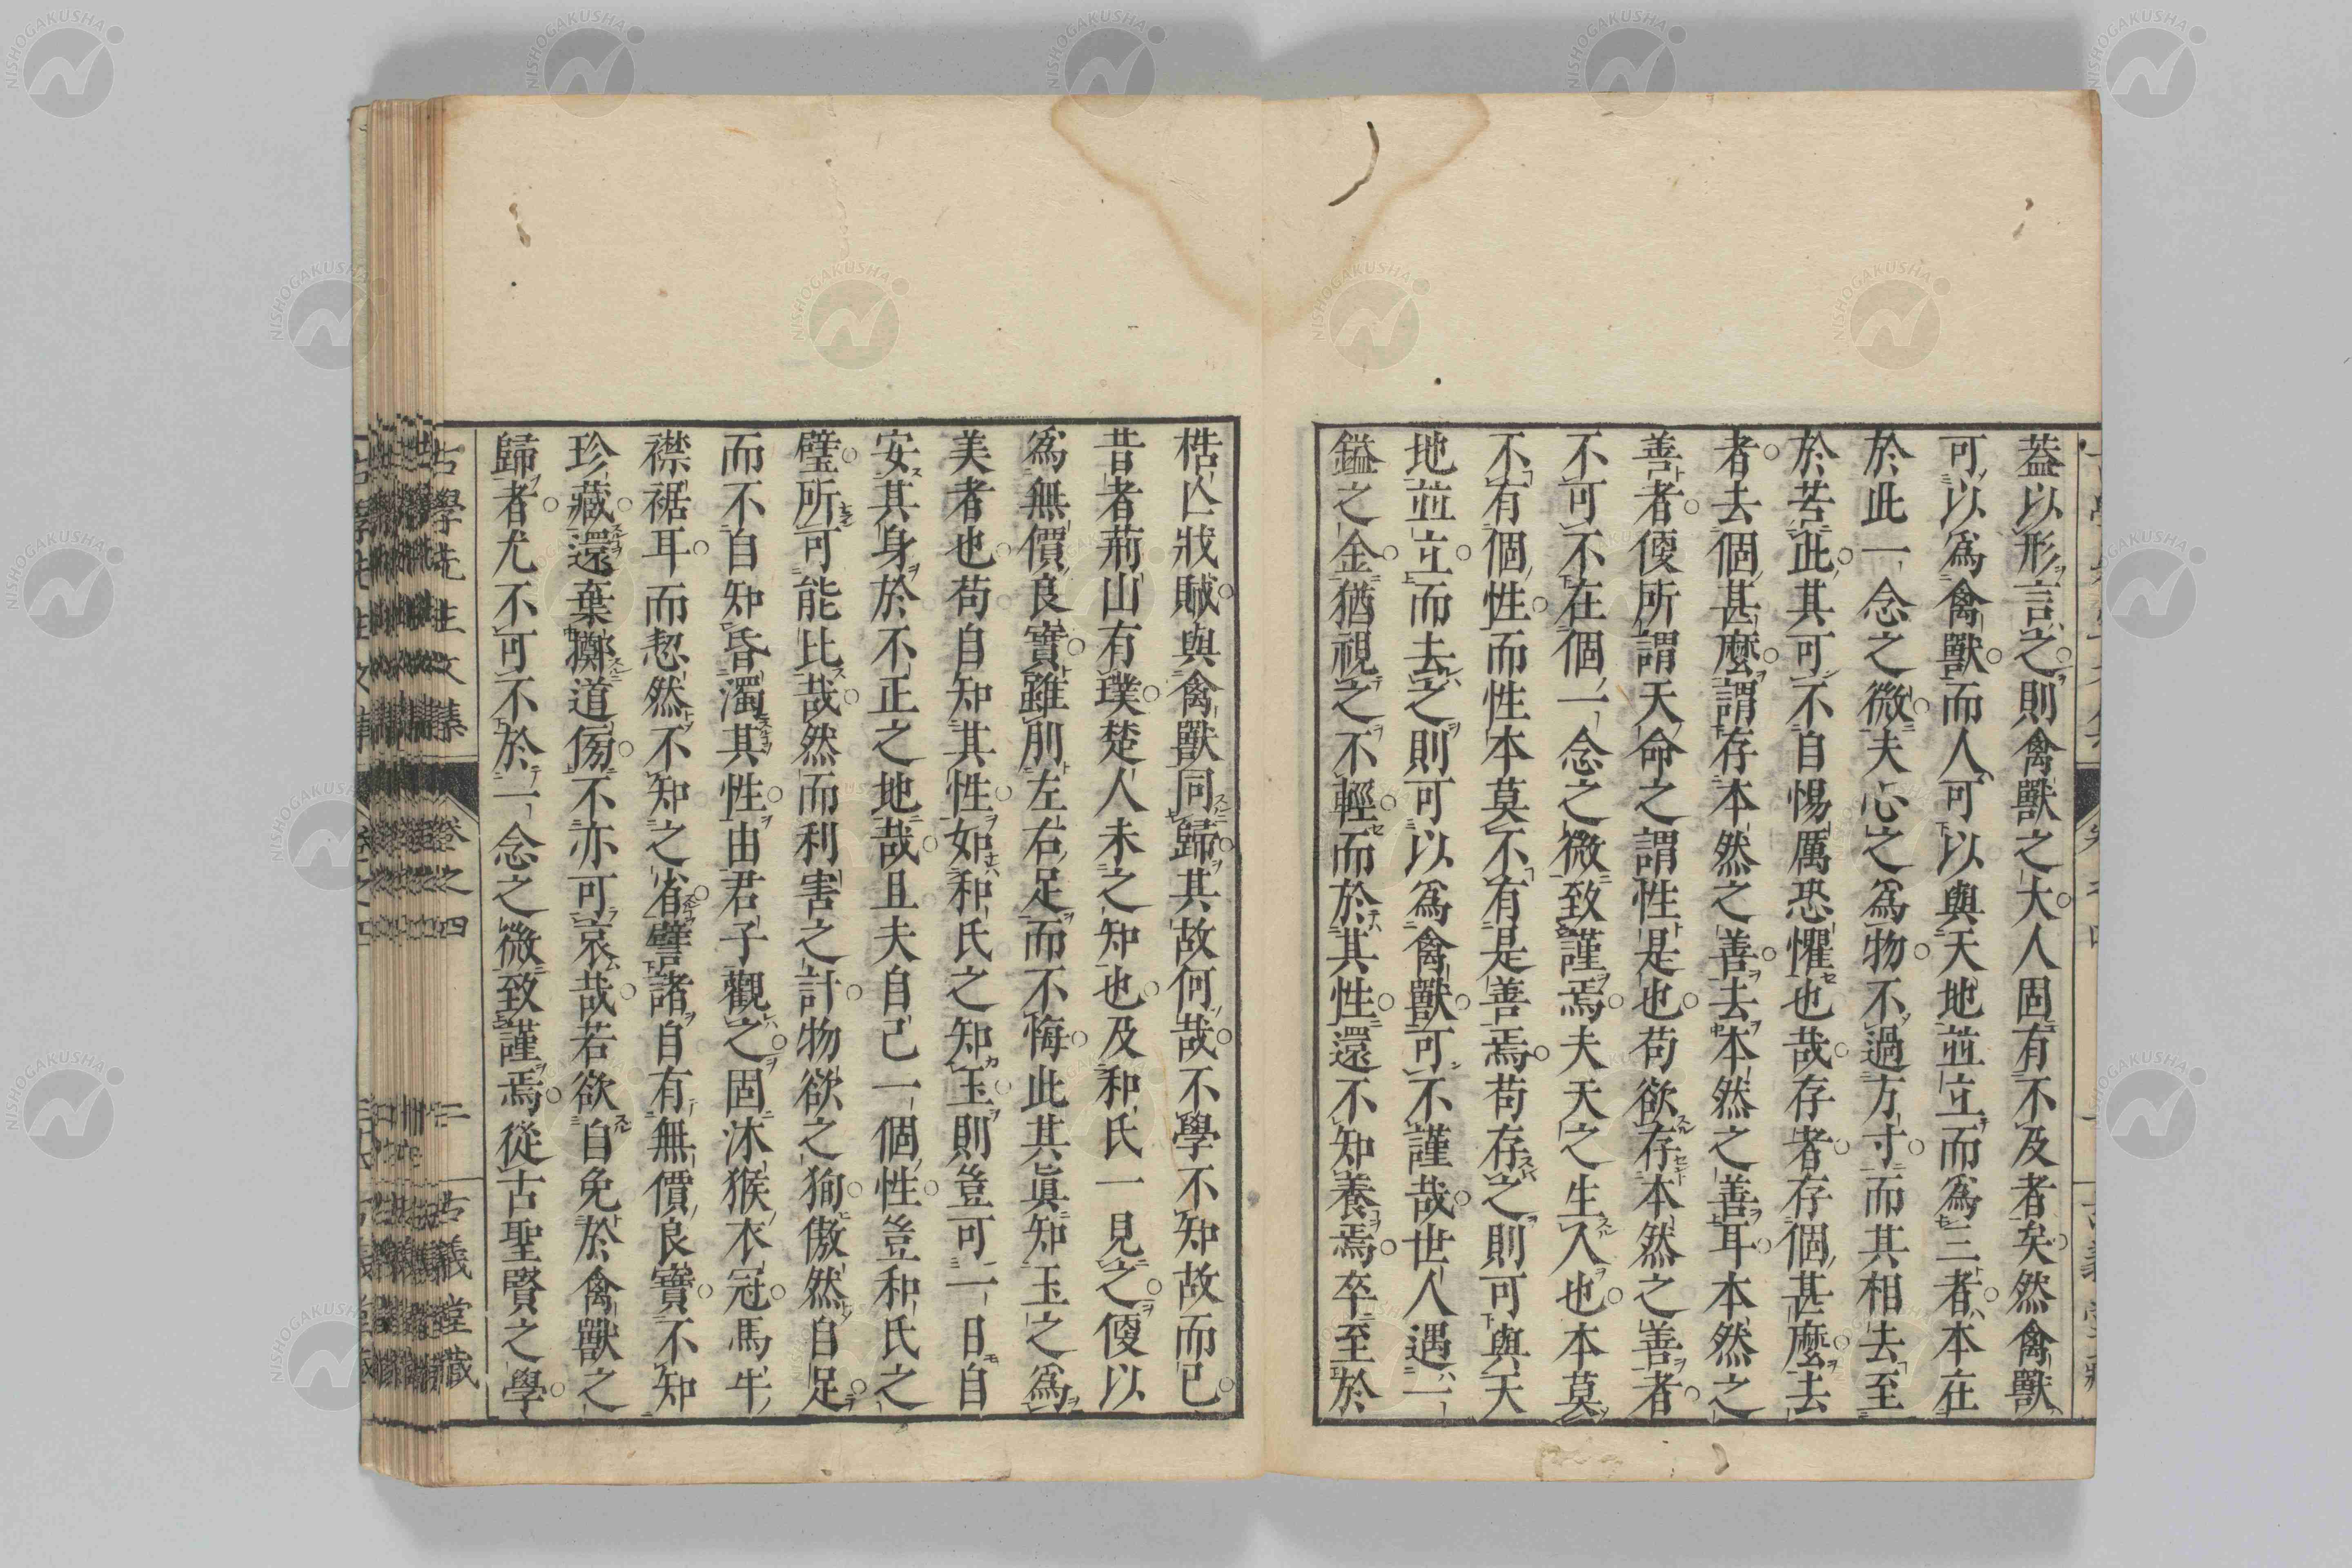 蓋以形言之則禽獸之大人固有不及者矣然禽獸
可以爲禽獸而人可以與天地並立而爲三者本在
於此一念之微夫心之爲物不過方寸而其相去至
於若此其可不自惕厲恐懼也哉存者存個甚麼去
者去個甚麼謂存本然之善去本然之善耳本然之
善者便所謂天命之謂性是也苟欲存本然之善者
不可不在個一念之微致謹焉夫天之生人也本莫
不有個性而性本莫不有是善焉苟存之則可與天
地並立而去之則可以爲禽獸可不謹哉世人遇一
鎰之金猶視之不輕而於其性還不知養焉卒至於
梏亾戕賊與禽獸同歸其故何哉不學不知故而已
昔者荊山有璞楚人未之知也及和氏一見之便以
爲無價良寶雖刖左右足而不悔此其眞知玉之爲
美者也苟自知其性如和氏之知玉則豈可一日自
安其身於不正之地哉且夫自己一個性豈和氏之
璧所可能比哉然而利害之計物欲之狥傲然自足
而不自知昏濁其性由君子觀之固沐猴衣冠馬牛
襟裾耳而恝然不知之省譬諸自有無價良寶不知
珍藏還棄擲道傍不亦可哀哉若欲自免於禽獸之
歸者尤不可不於一念之微致謹焉從古聖賢之學
古學先生文集 卷之四 二 古義堂藏